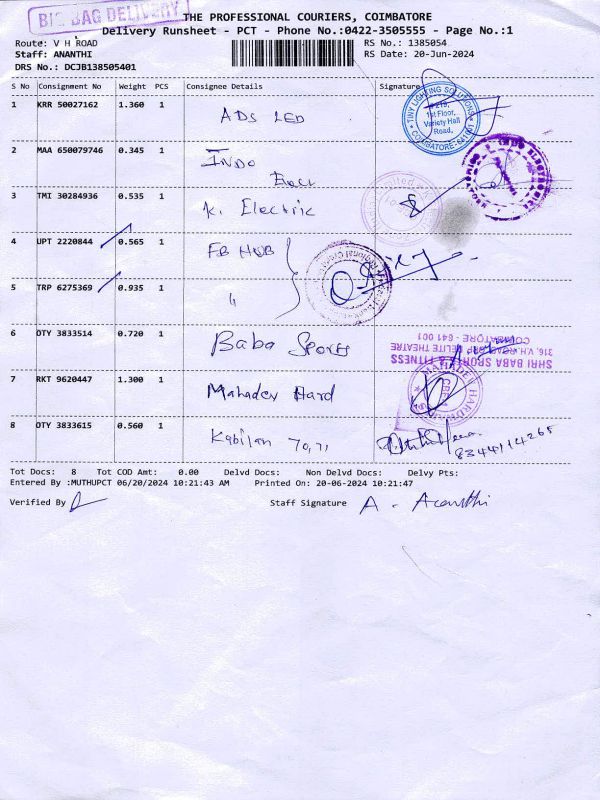 BIG BAG DELIVERY
THE PROFESSIONAL COURIERS, COIMBATORE
Delivery Runsheet - PCT - Phone No.:0422-3505555 - Page No.:1
Route: V H ROAD RS No.: 1385054
Staff: ANANTHI RS Date: 20-Jun-2024
DRS No.: DCJB138505401
S No Consignment No Weight PCS Consignee Details Signature
1 KRR 50027162 1.360 1 ADS LED
TINY LIGHTING SOLUTIONS
1st Floor,
Variety Hall
Road,
2 MAA 650079746 0.345 1 INDO
Elect
3 TMI 30284936 0.535 1 K. Electric
4 UPT 2220844 0.565 1 FB HUB
5 TRP 6275369 0.935 1 "
6 OTY 3833514 0.720 1 Baba Sports
SHRI BABA SPORTS & FITNESS
COIMBATORE - 641 001
7 RKT 9620447 1.300 1 Mahadev Hard
8 OTY 3833615 0.560 1 Kabilan 70,71
8344114265
Tot Docs: 8 Tot COD Amt: 0.00 Delvd Docs: Non Delvd Docs: Delvy Pts:
Entered By :MUTHUPCT 06/20/2024 10:21:43 AM Printed On: 20-06-2024 10:21:47
Verified By Staff Signature A. Ananthi